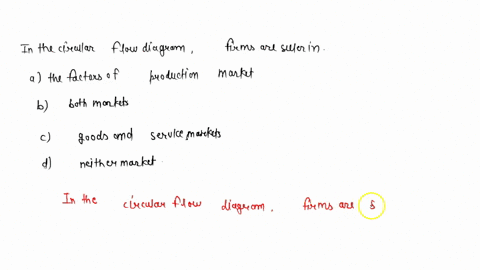 In the circular flow diagram, firms are seller in.
a) the factors of production market
b) both markets
c) goods and service markets
d) neither market.
In the circular flow diagram, firms are s